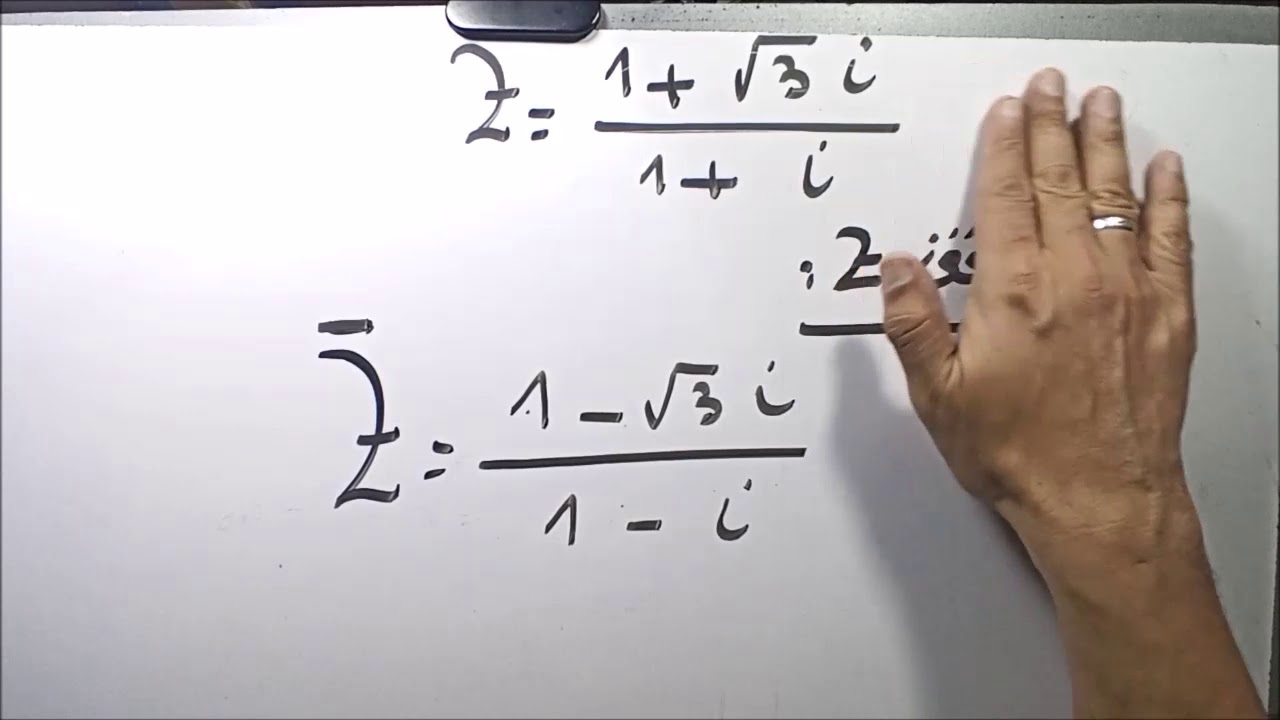 Z = (1 + √3 i) / (1 + i)
Z :
Z̄ = (1 - √3 i) / (1 - i)